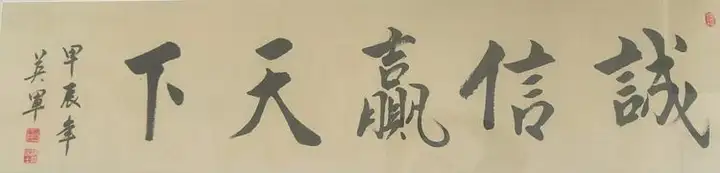 誠信贏天下
甲辰年
英軍